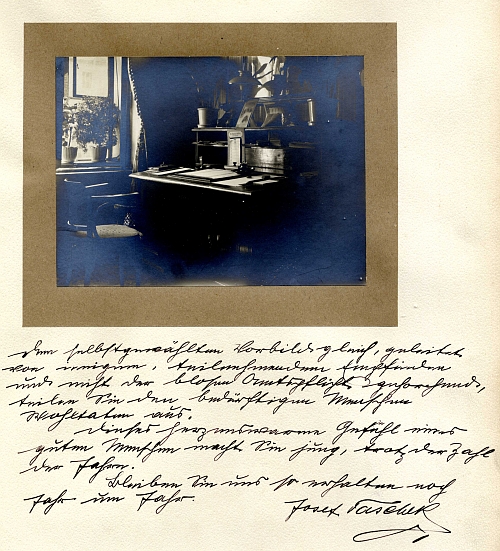 Dem selbstgewählten Vorbilde gleich, geleitet
von innigem, teilnehmendem Empfinden
und nicht der blosen Amtspflicht gehorchend,
teilen Sie den bedürftigen Menschen
Wohltaten aus.
Dieses herzenswarme Gefühl eines
guten Menschen macht Sie jung, trotz der Zahl
der Jahre.
Bleiben Sie uns so erhalten noch
Jahr um Jahr.
Josef Taschek